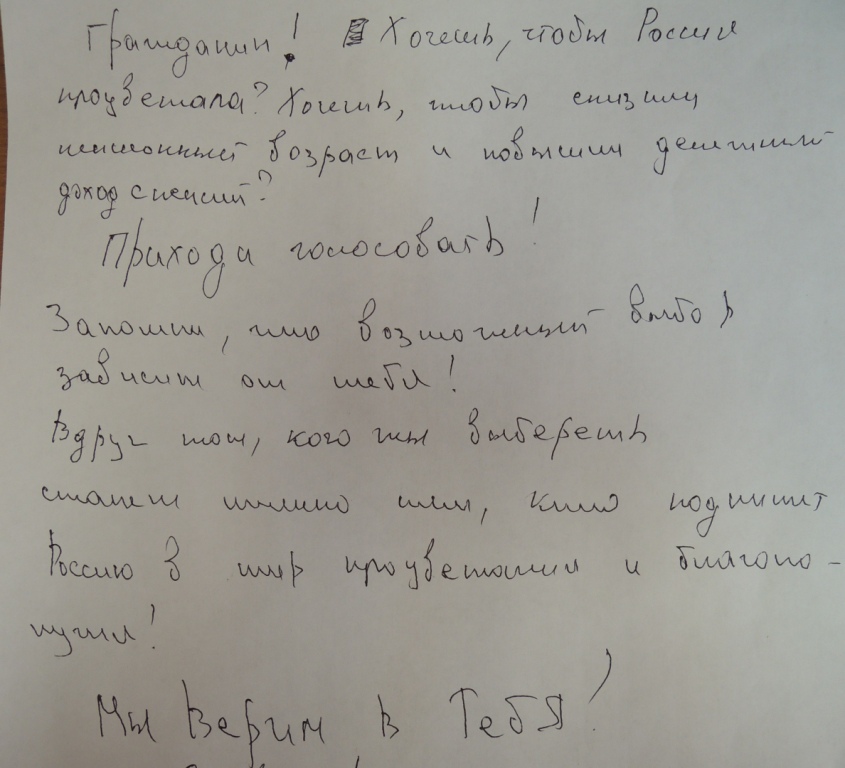 Гражданин! Хочешь, чтобы Россия
процветала? Хочешь, чтобы снизили
пенсионный возраст и повысили денежный
доход с пенсий?
Приходи голосовать!
Запомни, что возможный выбор
зависит от тебя!
Вдруг тот, кого ты выберешь
станет именно тем, кто поднимет
Россию в мир процветания и благопо-
лучия!
Мы верим в Тебя!